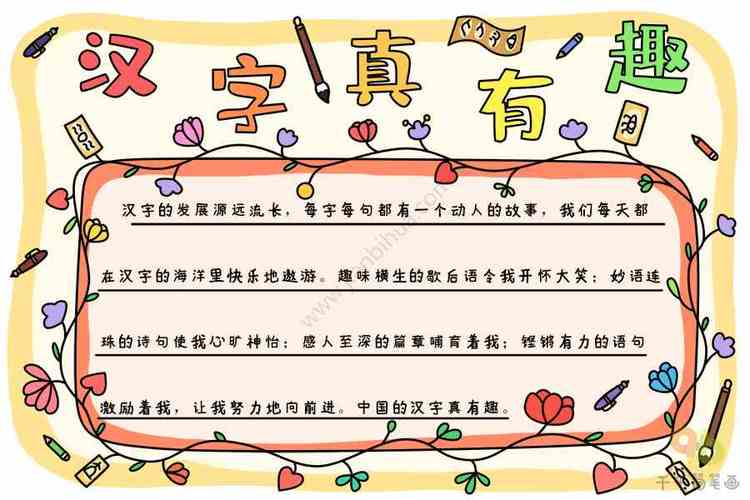 汉字真有趣
汉字的发展源远流长，每字每句都有一个动人的故事，我们每天都
在汉字的海洋里快乐地遨游。趣味横生的歇后语令我开怀大笑；妙语连
珠的诗句使我心旷神怡；感人至深的篇章哺育着我；铿锵有力的语句
激励着我，让我努力地向前进。中国的汉字真有趣。